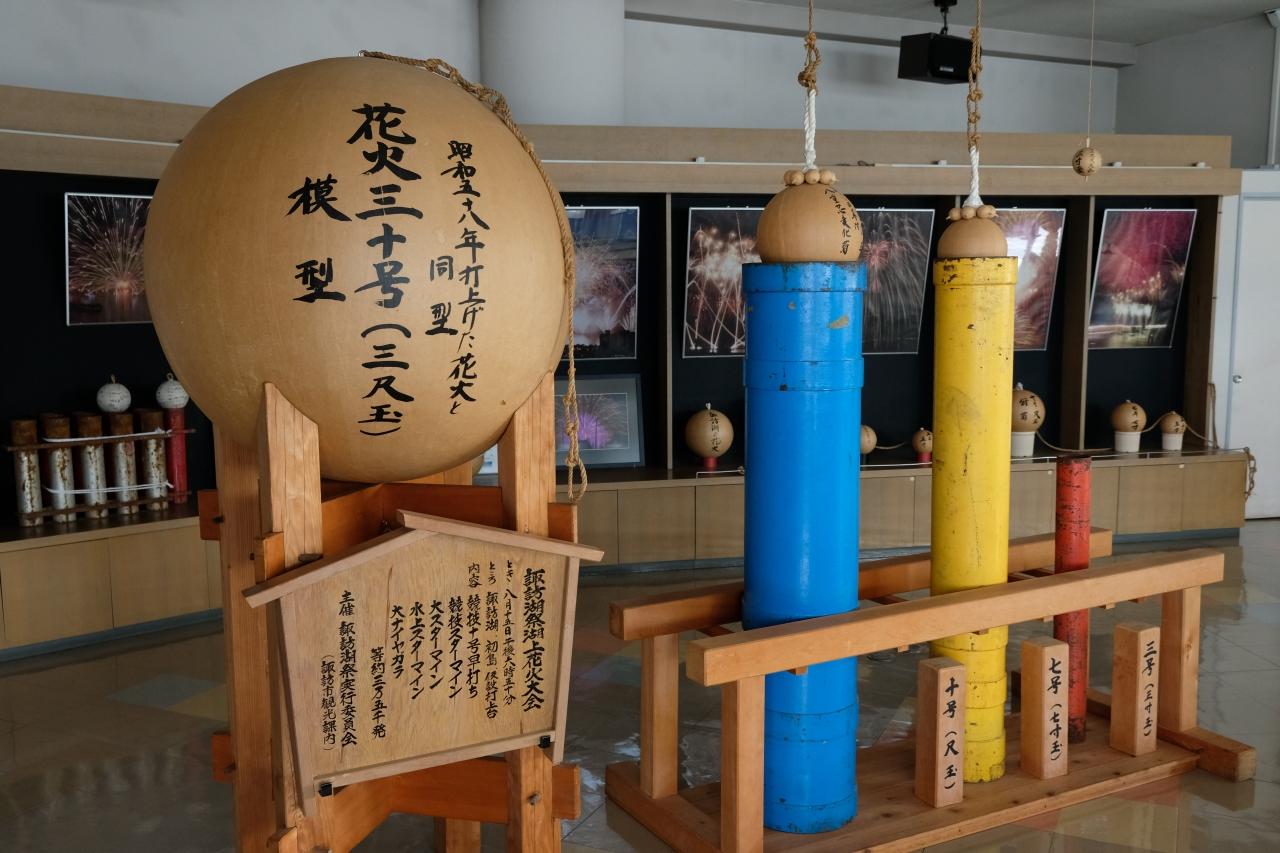 昭和五十八年打上げた花火と
同型
花火三十号(三尺玉)
模型
諏訪湖祭湖上花火大会
とき 八月十五日 午後六時五十分
ところ 諏訪湖、初島、仮設打上台
内容 競技十号早打ち
競技スターマイン
大スターマイン
水上スターマイン
大ナイヤガラ
等約三万五千発
主催 諏訪湖祭実行委員会
(諏訪市観光課内)
十号(尺玉)
七号(七寸玉)
三号(三寸玉)